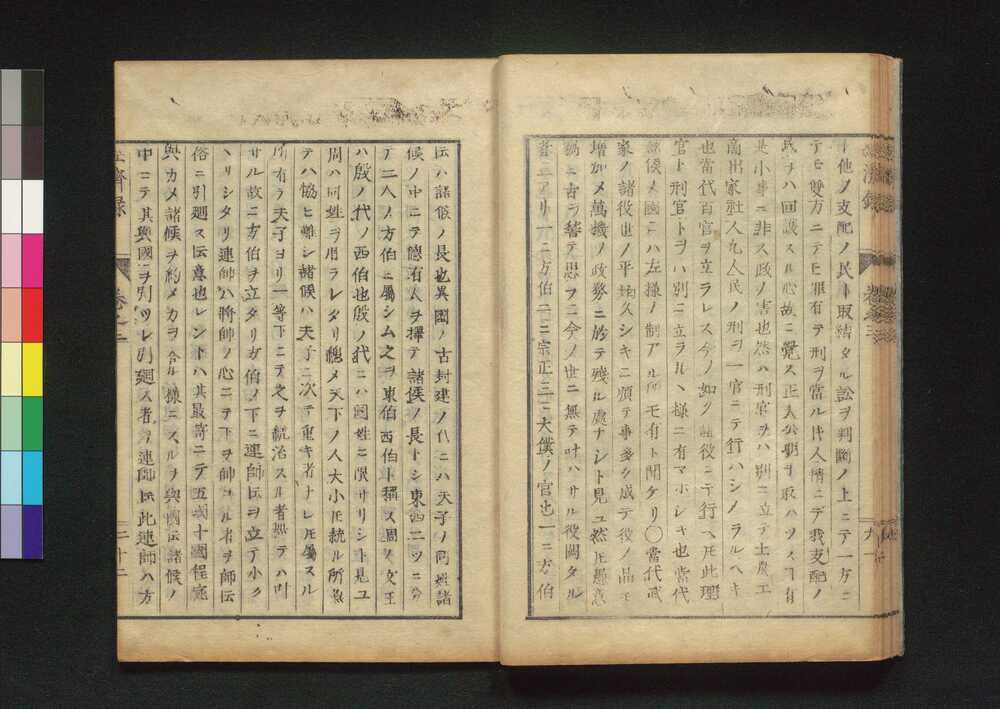 ト他ノ支配ノ民ト取結タル訟ヲ判斷ノ上ニテ一方ニ
テモ雙方ニテモ罪有テ刑ヲ當ル時人情ニテ我支配ノ
民ヲハ回護スル心故ニ覺ス正大公明ヲ取ハツスヿ有
是小事ニ非ス政ノ害也然ハ刑官ヲハ別ニ立テ士農工
商出家社人凡人民ノ刑ヲ一官ニテ行ハシメラルヘキ
也當代百官ヲ立ラレス今ノ如ク諸役ニテ行ヘ𪜈此理
官ト刑官トヲハ別ニ立ラルヽ樣ニ有マホシキ也當代
諸侯メ國ニハ左樣ノ制アル所モ有ト聞ケリ〇當代武
家ノ諸役世ノ平久シキニ順テ事多ク成テ役ノ品モ
增加メ萬機ノ政務ニ於テ殘ル處ナシト見ユ然𪜈愚意
竊ニ古ヲ替テ思フニ今ノ世ニ無テ叶ハサル役闕タル
ニ方伯二ニ宗正三ニ大僕ノ官也一ニ方伯
伝ハ諸侯ノ長也異國ノ古封建ノ代ニハ天子ノ同姓諸
候ノ中ニテ德有人ヲ擇テ諸侯ノ長トシ東西二ツニ分
テ二人ノ方伯ニ屬シム之ヲ東伯西伯ト稱ス周ノ文王
ハ殷ノ代ノ西伯也殷ノ代ニハ同姓ニ限サリシト見ユ
周ハ同姓ヲ用ラレタリ總メ天下ノ人大小𪜈統ル所無
テハ協ヒ難シ諸候ハ天子ニ次テ重キ者ナレ𪜈屬スル
所有ラ天子ヨリ一等下ニテ之ヲ統治スル者無テハ叶
サル故ニ方伯ヲ立タリ方伯ノ下ニ連師伝ヲ立テ小ク
トリシタリ連師ハ將師ノ心ニテ下ヲ師ユル者ヲ師伝
俗ニ引廻ス伝意也レントハ其最寄ニテ五國十國程宛
與カメ諸候ヲ約メカヲ合ル樣ニスルヲ與國伝諸候ノ
中ニテ其與國ヲ引ツレ引廻ス者ヲ連師伝此連師ハ方
濟錄
卷之三
二十二